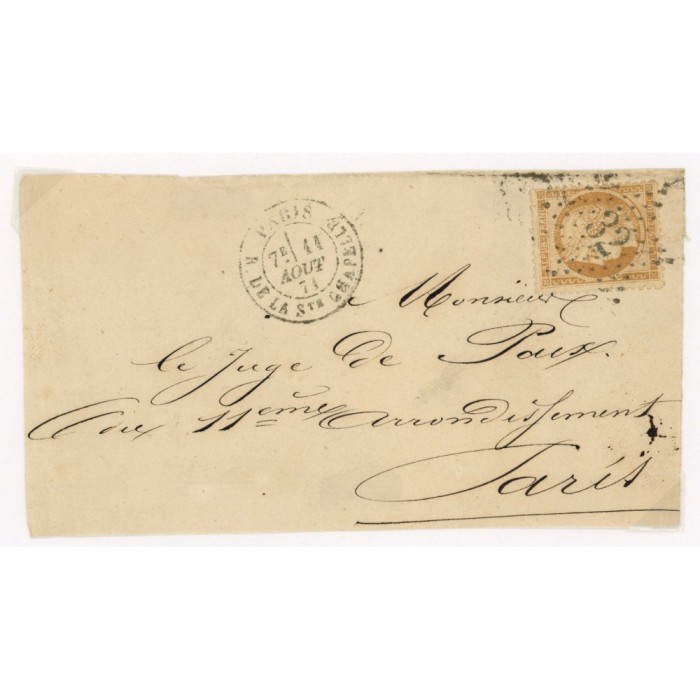 PARIS
7E 11
AOUT
71
R. DE LA STE CHAPELLE
a Monsieur
le Juge de Paix.
du 11ème Arrondissement
Paris